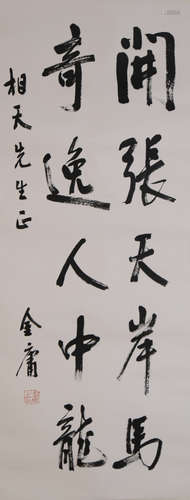 開張天岸馬
奇逸人中龍
相天先生正
金庸